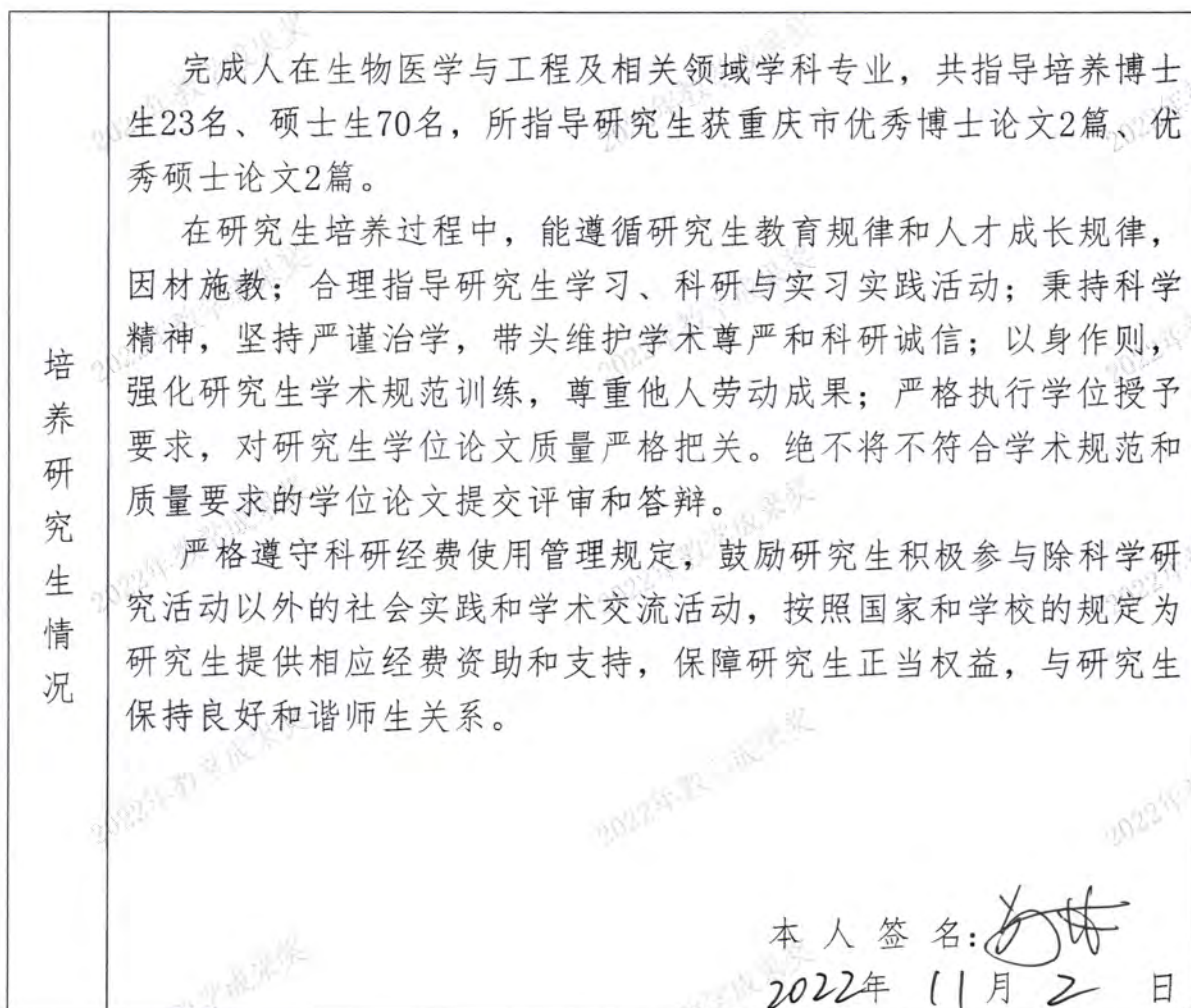 完成人在生物医学与工程及相关领域学科专业，共指导培养博士
生23名、硕士生70名，所指导研究生获重庆市优秀博士论文2篇、优
秀硕士论文2篇。
在研究生培养过程中，能遵循研究生教育规律和人才成长规律，
因材施教；合理指导研究生学习、科研与实习实践活动；秉持科学
精神，坚持严谨治学，带头维护学术尊严和科研诚信；以身作则，
强化研究生学术规范训练，尊重他人劳动成果；严格执行学位授予
要求，对研究生学位论文质量严格把关。绝不将不符合学术规范和
质量要求的学位论文提交评审和答辩。
严格遵守科研经费使用管理规定，鼓励研究生积极参与除科学研
究活动以外的社会实践和学术交流活动，按照国家和学校的规定为
研究生提供相应经费资助和支持，保障研究生正当权益，与研究生
保持良好和谐师生关系。
培养研究生情况
本人签名：
2022年 11月 2 日
2022年教学成果奖